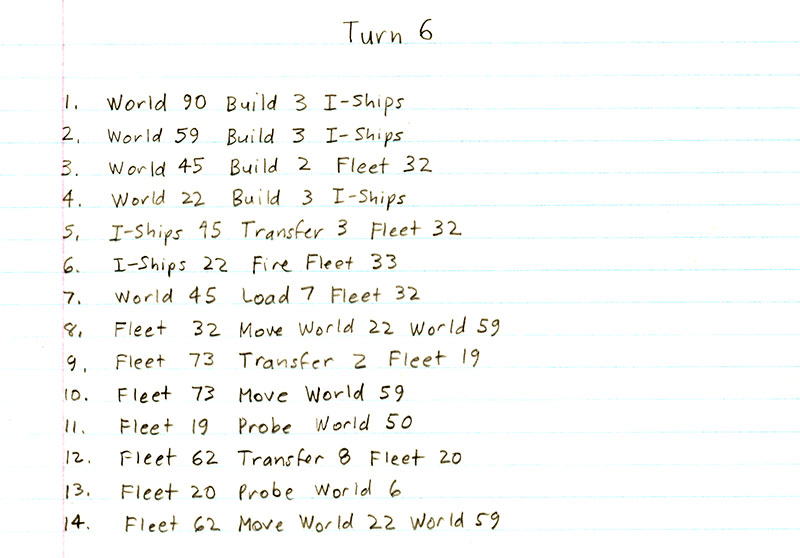 Turn 6
1. World 90 Build 3 I-Ships
2. World 59 Build 3 I-Ships
3. World 45 Build 2 Fleet 32
4. World 22 Build 3 I-Ships
5. I-Ships 45 Transfer 3 Fleet 32
6. I-Ships 22 Fire Fleet 33
7. World 45 Load 7 Fleet 32
8. Fleet 32 Move World 22 World 59
9. Fleet 73 Transfer 2 Fleet 19
10. Fleet 73 Move World 59
11. Fleet 19 Probe World 50
12. Fleet 62 Transfer 8 Fleet 20
13. Fleet 20 Probe World 6
14. Fleet 62 Move World 22 World 59